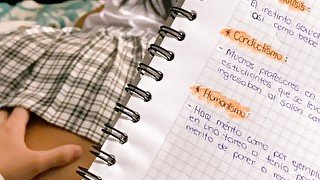 El instinto
Así como bebe
* Conductismo:
- Muchos profesores en
estudientes que se leva
ingresaban al salon con
* Humanismo:
- Hay merito como por ejemplo
en una tarea o tenia
merito de poner o